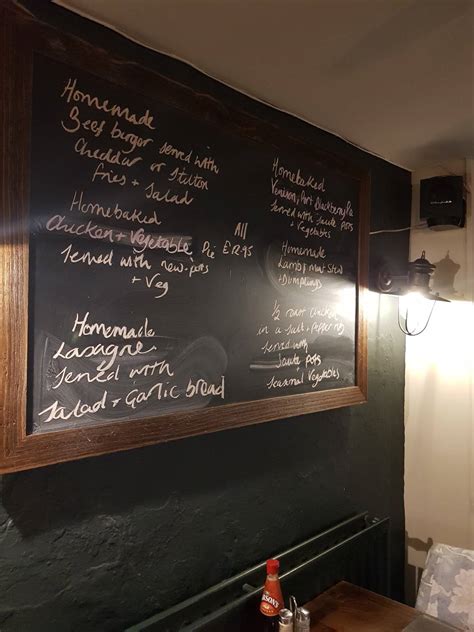 Homemade
Beef burger served with
Cheddar or Stilton
Fries + Salad
Homebaked
Chicken + Vegetable Pie
Served with new-pots
+ Veg
Homemade
Lasagne
Served with
Salad + Garlic bread
All
£12.95
Homebaked
Venison, Port Blackberry Pie
Served with Saute pots
+ Vegetables
Homemade
Lamb + mint Stew
+ Dumplings
½ roast chicken
in a Salt + Pepper
Served with
Saute pots
Seasonal Vegetables